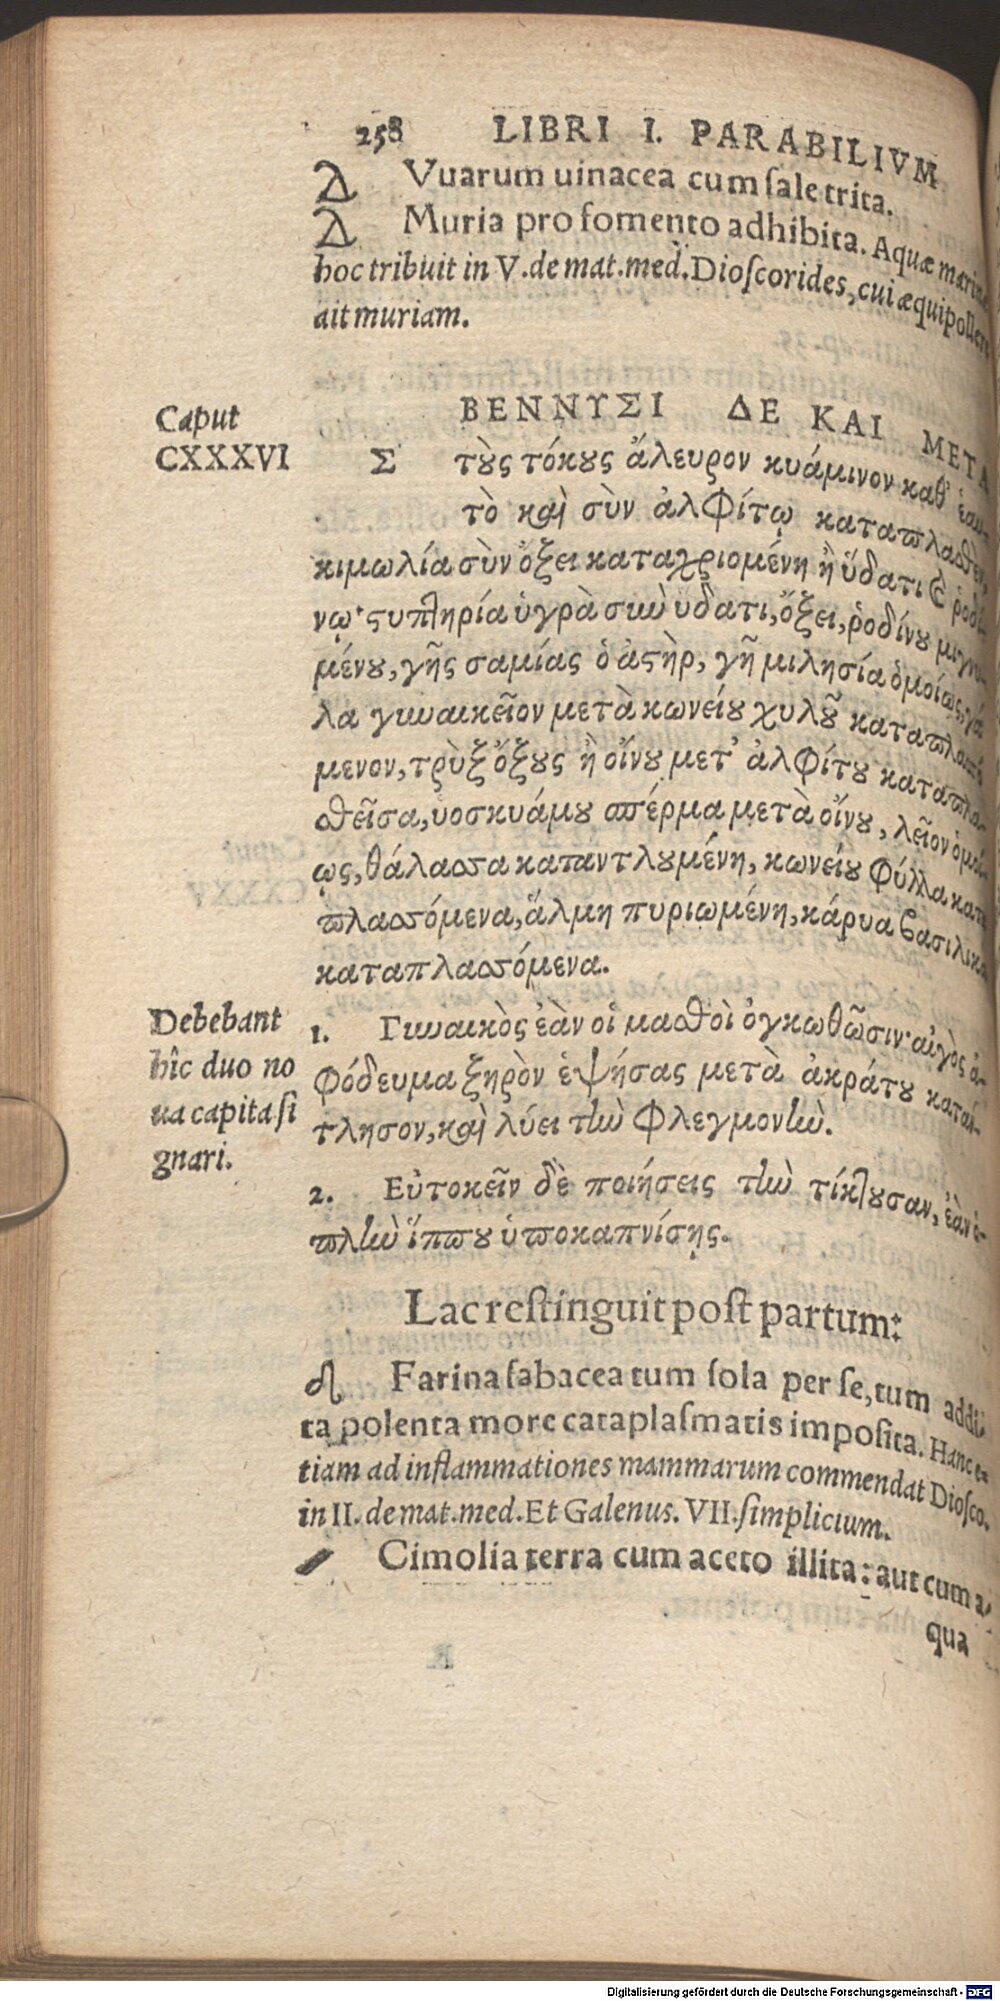 258 LIBRI I. PARABILIVM
Vuarum uinacea cum sale trita.
Muria pro fomento adhibita. Aquæ marinæ
hoc tribuit in V. de mat. med. Dioscorides, cui æquipollere
ait muriam.
Caput
CXXXVI
ΒΕΝΝΥΣΙ ΔΕ ΚΑΙ ΜΕΤΑ
Σ τοὺς τόκους ἄλευρον κυάμινον καθ' ἑαυ-
τὸ καὶ σὺν ἀλφίτῳ καταπλασθὲν,
κιμωλία σὺν ὄξει καταχριομένη ἢ ὕδατι καὶ ῥοδί-
νῳ· στυπτηρία ὑγρὰ σὺν ὕδατι, ὄξει, ῥοδίνου μιγνυ-
μένου, γῆς σαμίας ὁ ἀστὴρ, γῆ μιλησία ὁμοίως, γά-
λα γυναικεῖον μετὰ κωνείου χυλοῦ καταπλασσό-
μενον, τρὺξ ὄξους ἢ οἴνου μετ' ἀλφίτου καταπλα-
σθεῖσα, υοσκυάμου σπέρμα μετὰ οἴνου, λεῖον ὁμοί-
ως, θάλασσα καταντλουμένη, κωνείου φύλλα κατα
πλασσόμενα, ἅλμη πυριωμένη, κάρυα βασιλικὰ
καταπλασσόμενα.
Debebant
hîc duo no
ua capita si
gnari.
1. Γυναικὸς ἐὰν οἱ μασθοὶ ὀγκωθῶσιν· αἰγὸς ἀ-
φόδευμα ξηρὸν ἑψήσας μετὰ ἀκράτου κατάν-
τλησον, καὶ λύει τὴν φλεγμονὴν.
2. Εὐτοκεῖν δὲ ποιήσεις τὴν τίκτουσαν, ἐὰν ὁ-
πλὴν ἵππου ὑποκαπνίσῃς.
Lac restinguit post partum:
Farina fabacea tum sola per se, tum addi-
ta polenta more cataplasmatis imposita. Hanc e-
tiam ad inflammationes mammarum commendat Diosco.
in II. de mat. med. Et Galenus. VII. simplicium.
Cimolia terra cum aceto illita: aut cum a-
qua
Digitalisierung gefördert durch die Deutsche Forschungsgemeinschaft - DFG